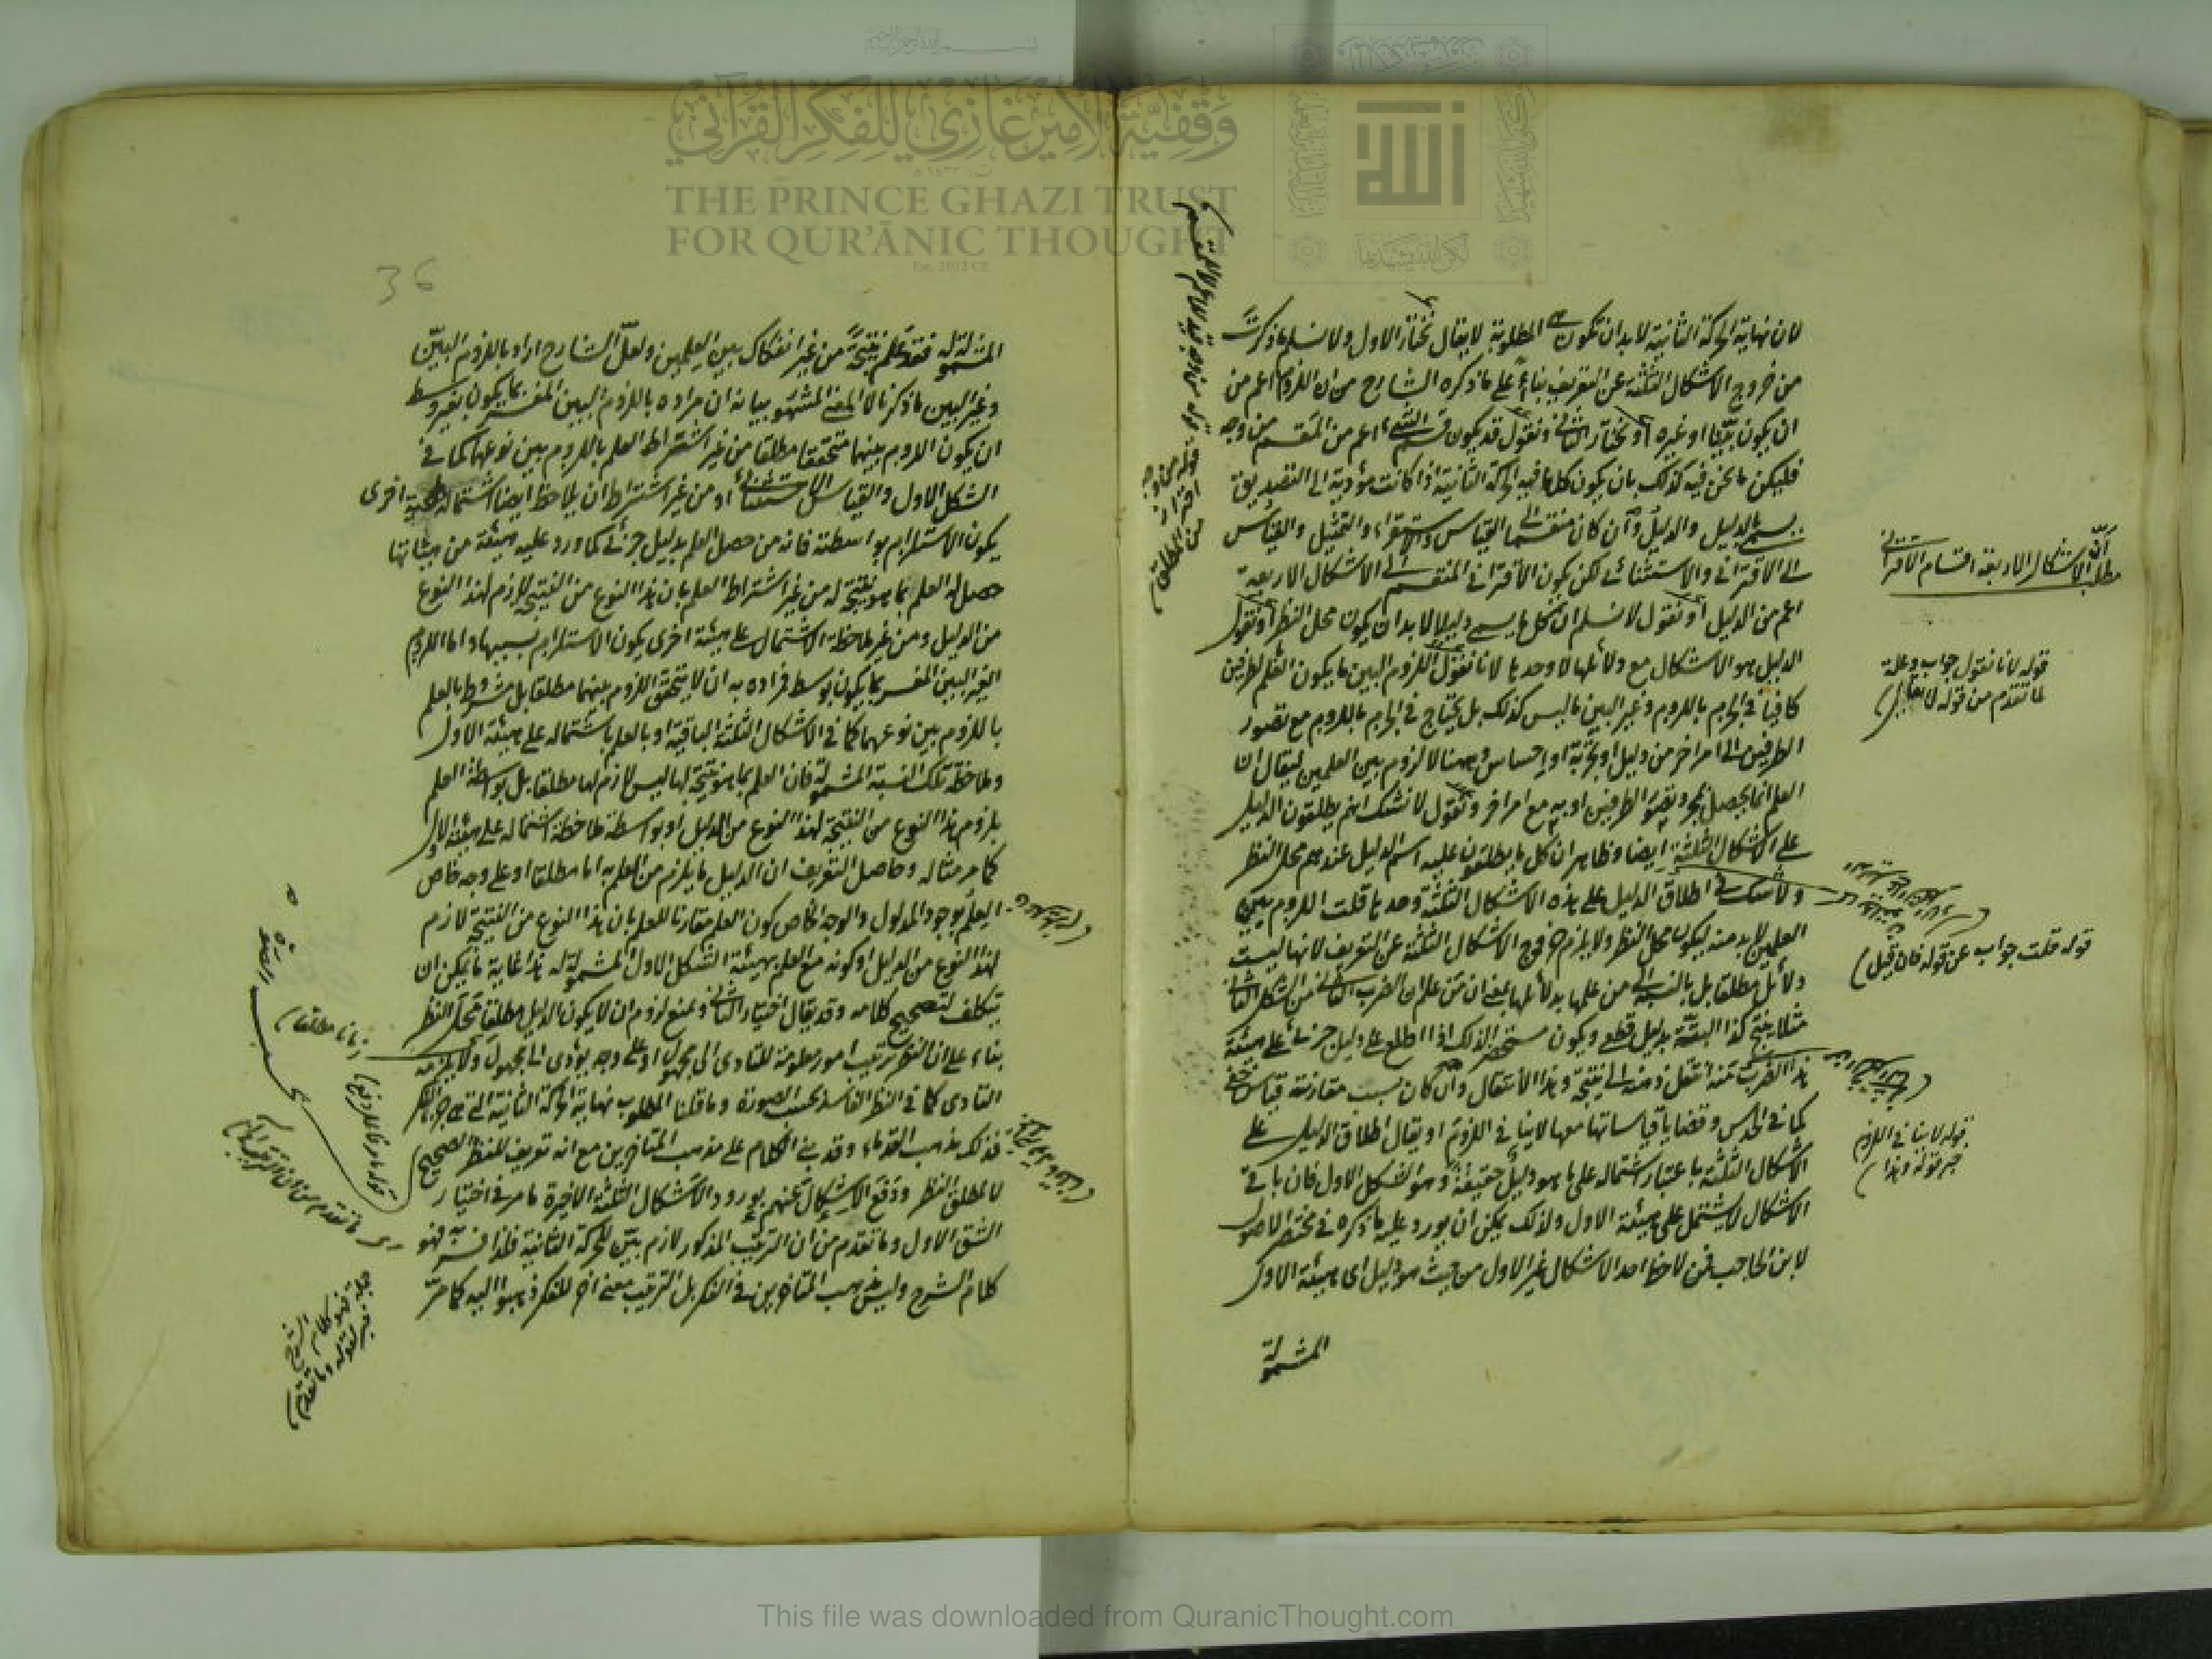 وقفية الأمير غازي للفكر القرآني
THE PRINCE GHAZI TRUST
FOR QUR'ĀNIC THOUGHT
Est. 2012 CE
الله
لان نهاية الحركة الثانية لابد ان تكون هى المطلوبة لا يقال نختار الاول ولا نسلم ما ذكرت
من خروج الاشكال الثلثة عن التعريف بناء على ما ذكره الشارح من ان اللزوم اعم من
ان يكون بينا او غيره او نختار الثانى ونقول قد يكون قسم الشئ اعم من المقسم من وجه
فليكن ما نحن فيه كذلك بان يكون كل ما فيه الحركة الثانية اذا كانت مؤدية الى التصديق
يسمى بالدليل والدليل وان كان منقسما الى القياس والاستقراء والتمثيل والقياس
الى الاقترانى والاستثنائى لكن يكون الاقترانى المنقسم الى الاشكال الاربعة
اعم من الدليل او نقول لا نسلم ان كل ما يسمى دليلا لابد ان يكون محل النظر او نقول
الدليل هو الاشكال مع دلائلها لا وحدها لانا نقول اللزوم البين ما يكون العلم بالطرفين
كافيا فى الجزم باللزوم وغير البين ما ليس كذلك بل يحتاج فى الجزم باللزوم مع تصور
الطرفين الى امر اخر من دليل او تجربة او احساس وههنا لا لزوم بين العلمين ليقال ان
العلم انما يحصل بمجرد تصور الطرفين او به مع امر اخر ونقول لا نشك انهم يطلقون الدليل
على الاشكال الثلثة ايضا وظاهر ان كل ما يطلقون عليه اسم الدليل عندهم محل النظر
ولا شك فى اطلاق الدليل على هذه الاشكال الثلثة وحدها قلت اللزوم بين
العلمين لابد منه ليكون محل النظر ولا يلزم خروج الاشكال الثلثة عن التعريف لانها ليست
دلائل مطلقا بل بالنسبة الى من علمها بدلائلها بمعنى ان من علم ان الضرب الثانى من الشكل الثانى
مثلا ينتج كذا البتة بدليل قطعى ويكون مستحضرا لذلك اذا اطلع على دليل جزئى على هيئة
هذا الضرب فمنه انتقل ذهنه الى نتيجة وهذا الانتقال وان كان بسبب مقارنة قياس خفى
كما فى الحدس وقضايا قياساتها معها لا ينافى اللزوم او يقال اطلاق الدليل على
الاشكال الثلثة باعتبار اشتماله على ما هو دليل حقيقة وهو الشكل الاول فان باقى
الاشكال لا يشتمل على هيئة الاول ولذلك يمكن ان يورد عليه ما ذكره فى مختصر الاصول
لابن الحاجب فمن لاحظ احد الاشكال غير الاول من حيث هو دليل اى هيئة الاول
المشمولة
مطلب ان الاشكال الاربعة اقسام الاقترانى
قوله لانا نقول جواب وعلة
لما تقدم من قوله لا يقال
قوله قلت جواب عن قوله فان قيل
قوله لا ينافى اللزوم
خبر قوله وهذا
36
المشمولة له فقد علم نتيجة من غير انفكاك بين العلمين ولعل الشارح اراد باللزوم البين
وغير البين ما ذكرنا لا المعنى المشهور بيانه ان مراده باللزوم البين المفسر بما يكون بغير وسط
ان يكون اللزوم بينهما متحققا مطلقا من غير اشتراط العلم باللزوم بين نوعهما كما فى
الشكل الاول والقياس الاستثنائى او من غير اشتراط ان يلاحظ ايضا اشتماله اخرى
يكون الاستلزام بواسطته فانه من حصل العلم بدليل جزئى كما ورد عليه هيئة من هيئاتها
حصل له العلم بما هو نتيجة له من غير اشتراط العلم بان هذا النوع من النتيجة لازم لهذا النوع
من الدليل ومن غير ملاحظة الاشتمال على هيئة اخرى يكون الاستلزام بسببها واما اللزوم
الغير البين المفسر بما يكون بوسط فمراده به ان لا يتحقق اللزوم بينهما مطلقا بل مشروط بالعلم
باللزوم بين نوعهما كما فى الاشكال الثلثة الباقية او بالعلم باشتماله على هيئة الاول
وملاحظة تلك النسبة المشمولة فان العلم بما هو نتيجة لها ليس لازم لها مطلقا بل بواسطة العلم
بلزوم هذا النوع من النتيجة لهذا النوع من الدليل او بواسطة ملاحظة اشتماله على هيئة الاول
كما مر مثاله وحاصل التعريف ان الدليل ما يلزم من العلم به اما مطلقا او على وجه خاص
العلم بوجود المدلول والوجه الخاص كون العلم مقارنا للعلم بان هذا النوع من النتيجة لازم
لهذا النوع من الدليل او كونه مع العلم بهيئة الشكل الاول المشمولة له هذا غاية ما يمكن ان
يتكلف لتصحيح كلامه وقد يقال اختيار الثانى ومنع لزوم ان لا يكون الدليل مطلقا محل النظر
بناء على ان النظر ترتيب امور معلومة للتادى الى مجهول او على وجه يؤدى الى مجهول ولا يلزمه
التادى كما فى النظر الفاسد بحسب الصورة وما قلنا المطلوب نهاية الحركة الثانية التى هى جزء الفكر
فذلك مذهب القدماء وقد بنى الكلام على مذهب المتاخرين مع انه تعريف للنظر الصحيح
لا لمطلق النظر ودفع الاشكال عنهم بورود الاشكال الثلثة الاخيرة ما مر فى اختيار
الشق الاول وما تقدم من ان الترتيب المذكور لازم بين للحركة الثانية فلذا فسر فهو
كلام الشرح وليس مذهب المتاخرين فى الفكر بل الترتيب معنى اخر للفكر ذهبوا اليه كما مر
This file was downloaded from QuranicThought.com